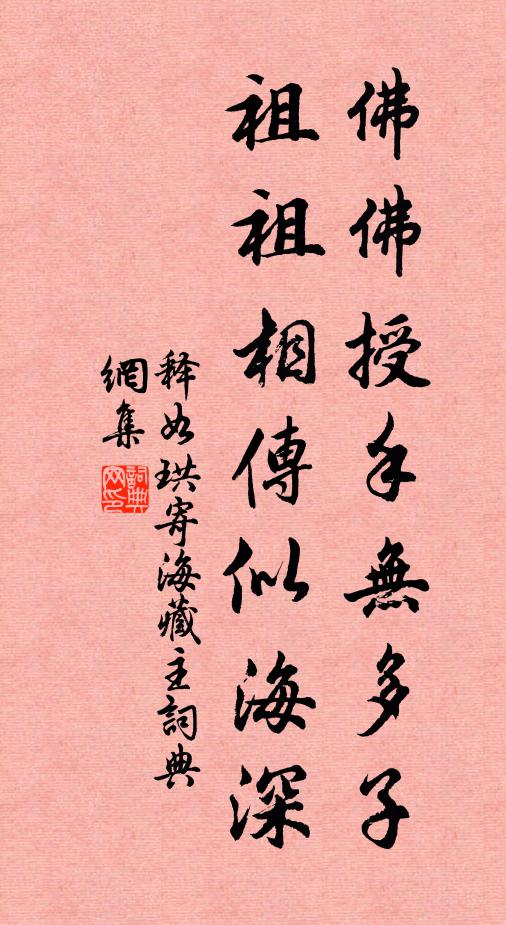 佛佛授手無多子
祖祖相傳似海深
释如珙寄海藏主詞典
網集
詞典網印